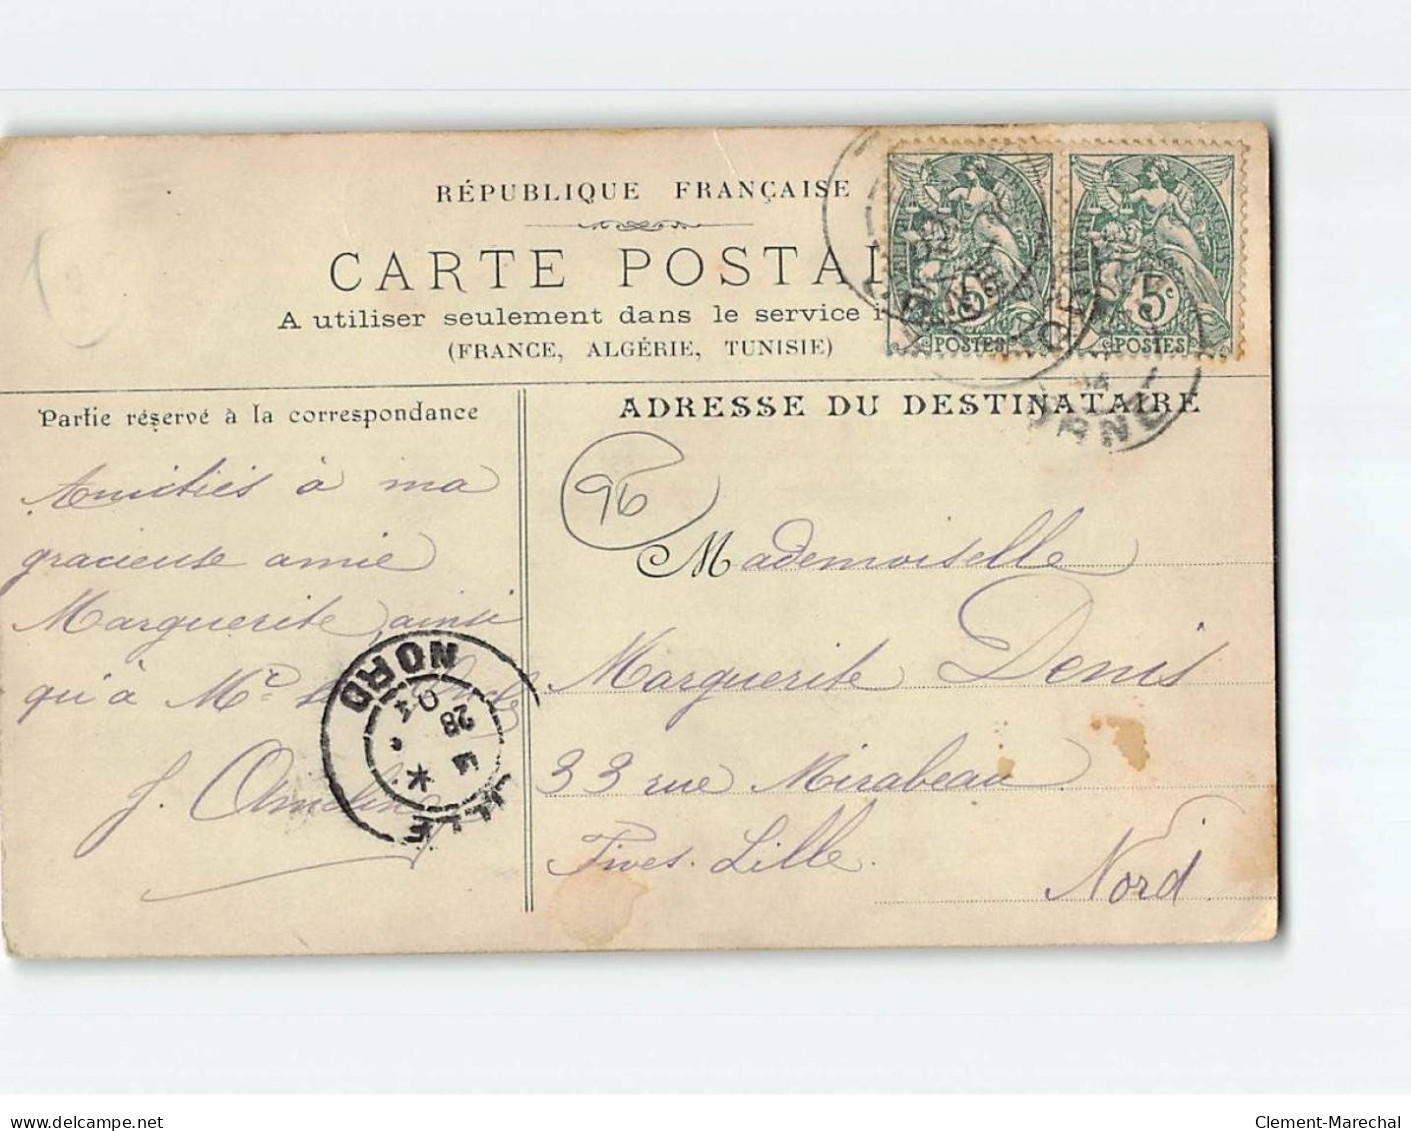 RÉPUBLIQUE FRANÇAISE
CARTE POSTAL
A utiliser seulement dans le service i
(FRANCE, ALGÉRIE, TUNISIE)
5c
POSTES
5c
POSTES
ORNE
Partie réservé à la correspondance
Amitiés à ma
gracieuse amie
Marguerite ainsi
qu'à
J.
LILLE
NORD
28
04
ADRESSE DU DESTINATAIRE
96
Mademoiselle
Marguerite Denis
33 rue Mirabeau
Fives-Lille.
Nord
delcampe.net
Clement-Marechal